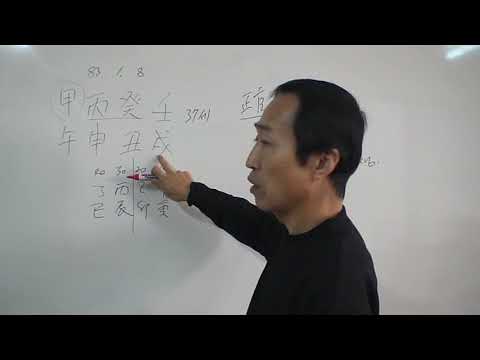 83 1. 8
甲 丙 癸 壬 37세
午 申 丑 戌
40 30 20
丁 丙
巳 辰 卯 寅